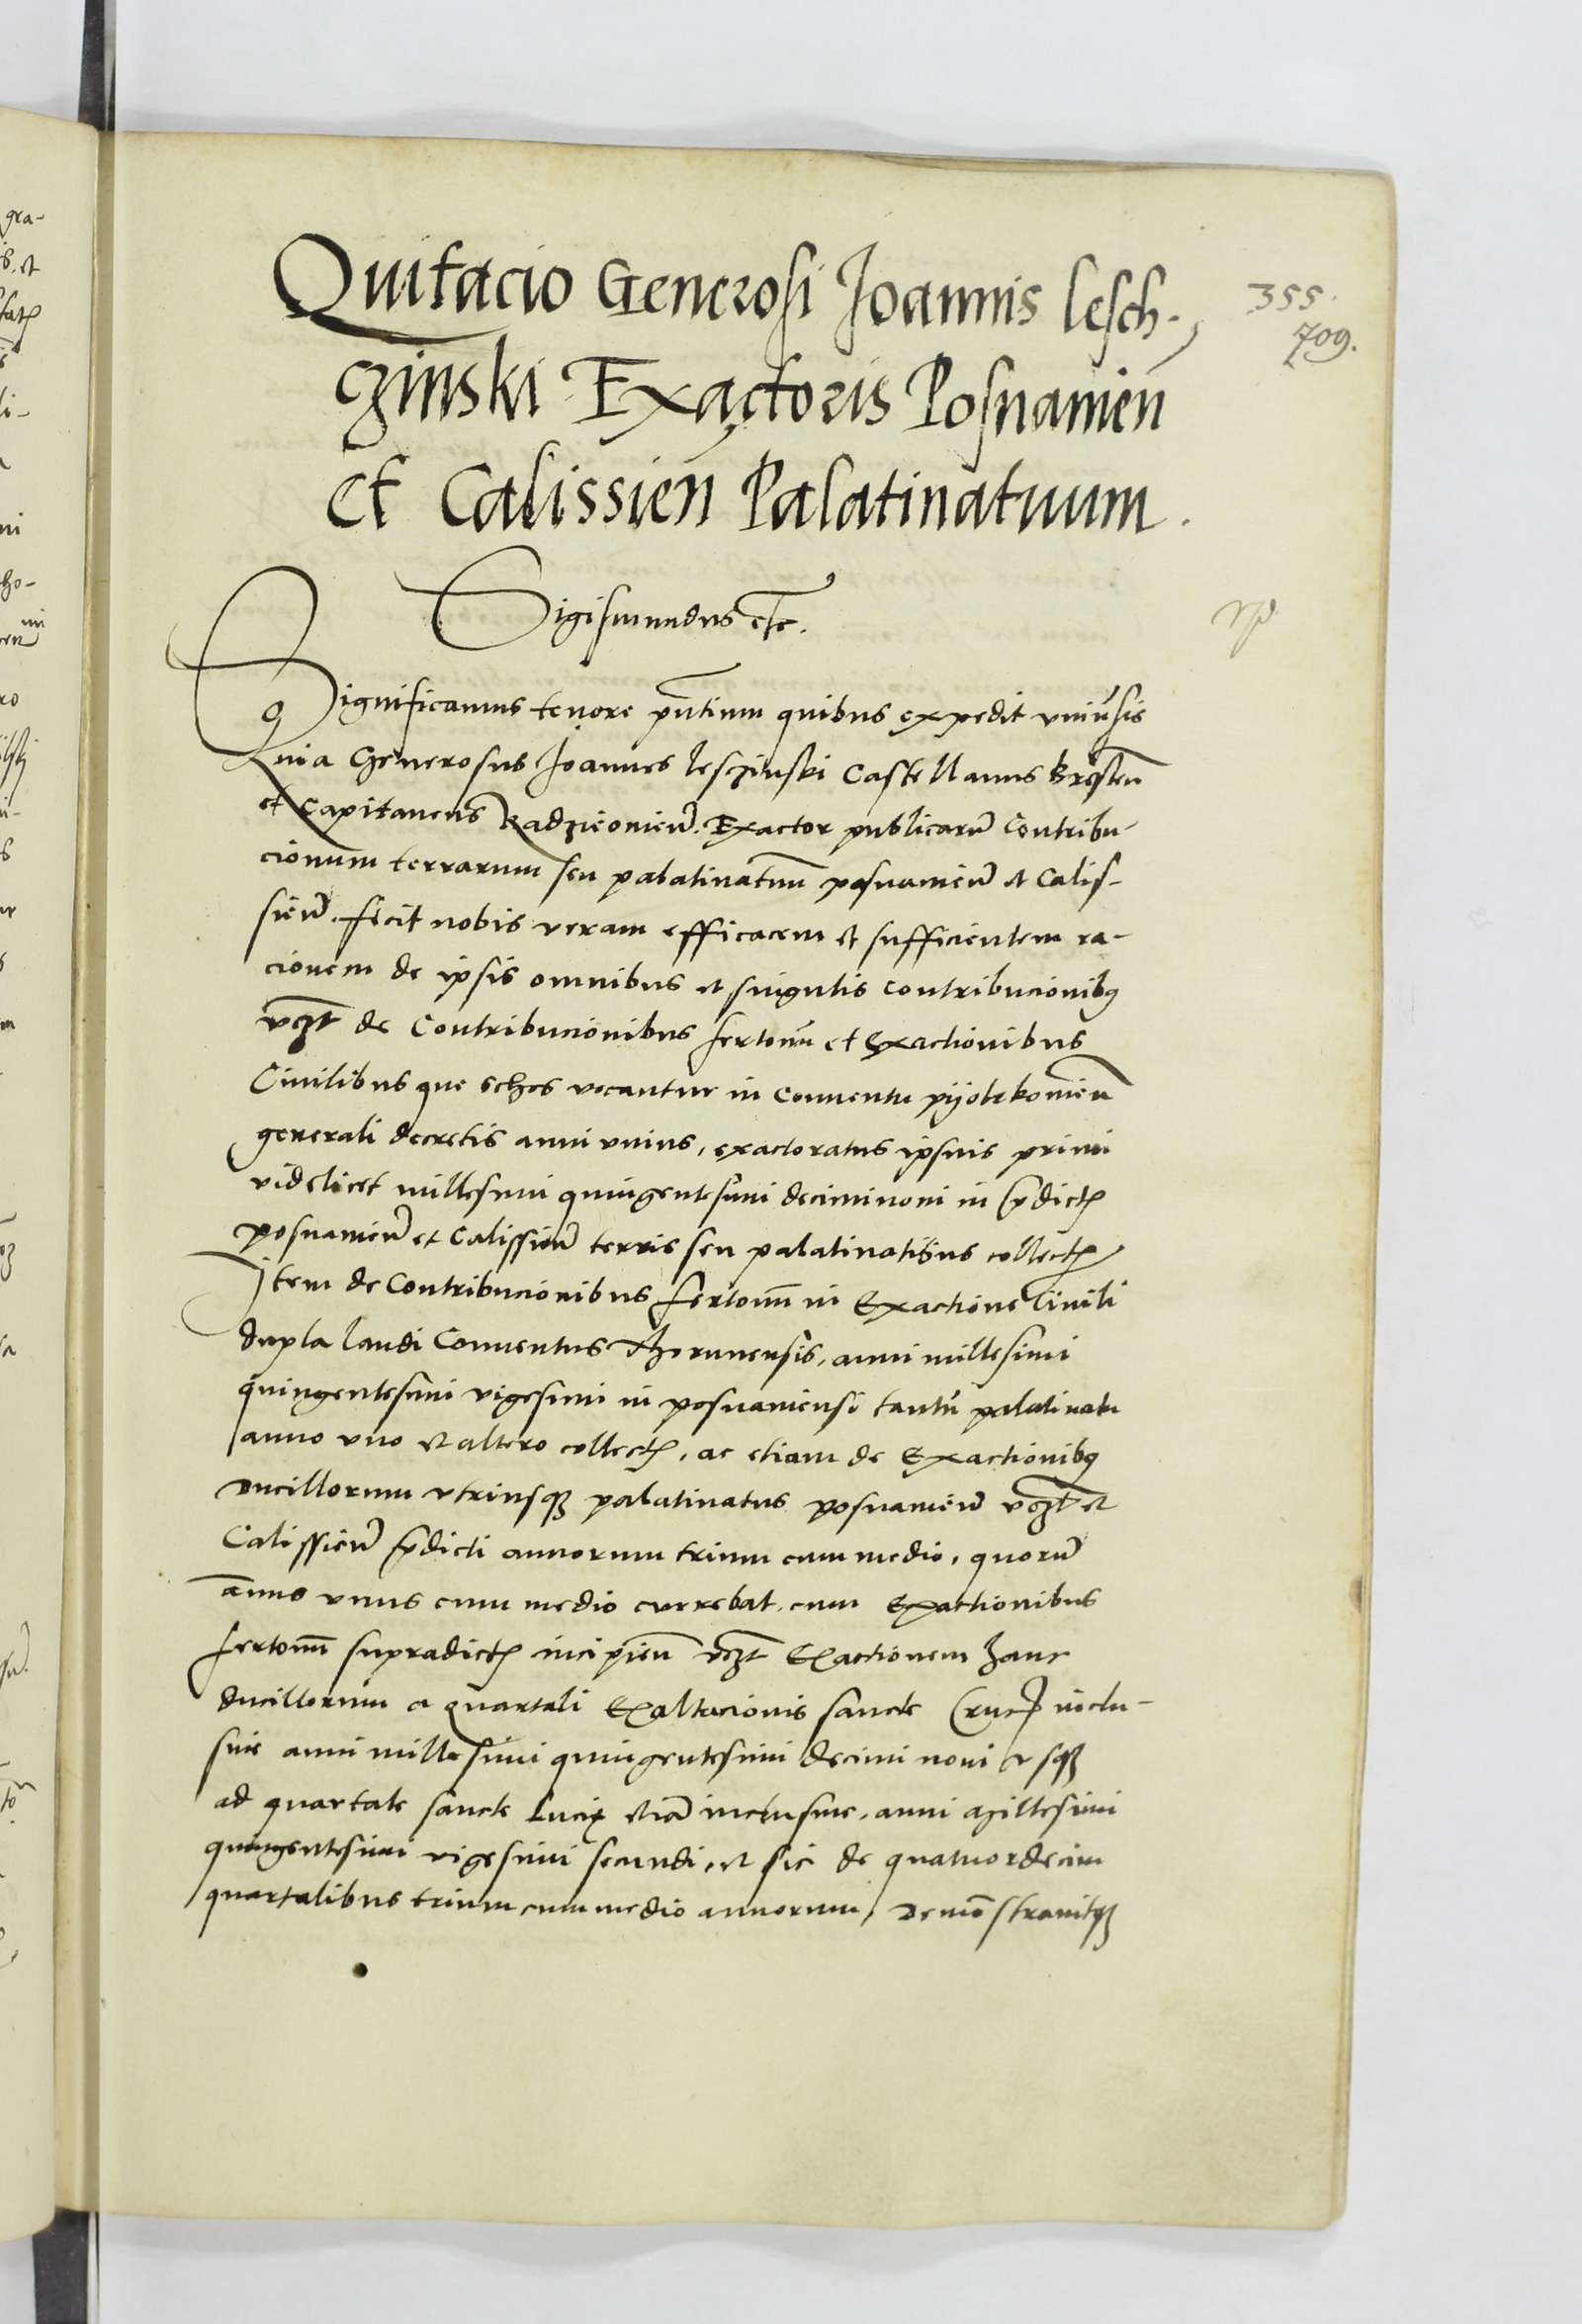 Quitacio Generosi Joannis lesch-
czinski Exactoris Posnanien
Et Calissien Palatinatuum.
355.
709.
Sigismundus etc.
Significamus tenore pntium quibus expedit univsis
Quia Generosus Joannes leszinski Castellanus Bresten
et Capitaneus Radzieowien. Exactor publicarum Contribu-
cionum terrarum seu palatinatuum posnanien et Calis-
sien. fecit nobis veram efficacem et sufficientem ra-
cionem de ipsis omnibus et singulis contribucionibq
vczt de Contribucionibus fertonum et Exactionibus
Civilibus que schos vocantur in Conventu pyotrkovien
generali decretis anni unius, exactoratus ipsius primi
videlicet millesimi quingentesimi deciminoni in pdict
posnanien et Calissien terris seu palatinatibus collect
Item de Contribucionibus fertonum in Exactione Civili
dupla laudi Conventus Thorunensis, anni millesimi
quingentesimi vigesimi in posnaniensi tantum palatinatu
anno uno et altero collect, ac etiam de Exactionibq
Ducillorum utriusq palatinatus posnanien vczt et
Calissien pdicti annorum trium cum medio, quorum
annus unus cum medio currebat cum Exactionibus
fertonum supradict incipien vczt Exactionem hanc
ducillorum a quartali Exaltacionis sancte Cruc inclu-
sive anni millesimi quingentesimi decimi noni usq
ad quartale sancte Lucie etia inclusive, anni Millesimi
quingentesimi vigesimi secundi, et sic de quatuordecim
quartalibus trium cum medio annorum, Demonstravitq